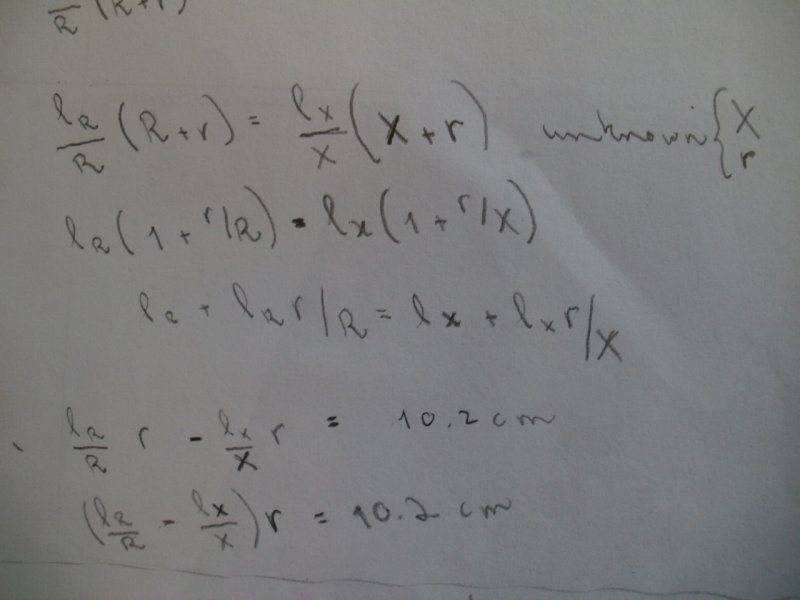 R (R+r)
l_R/R (R+r) = l_x/x (X+r) unknown { X r
l_R (1 + r/R) = l_x (1 + r/X)
l_R + l_R r/R = l_x + l_x r/X
l_R/R r - l_x/X r = 10.2 cm
(l_R/R - l_x/x) r = 10.2 cm